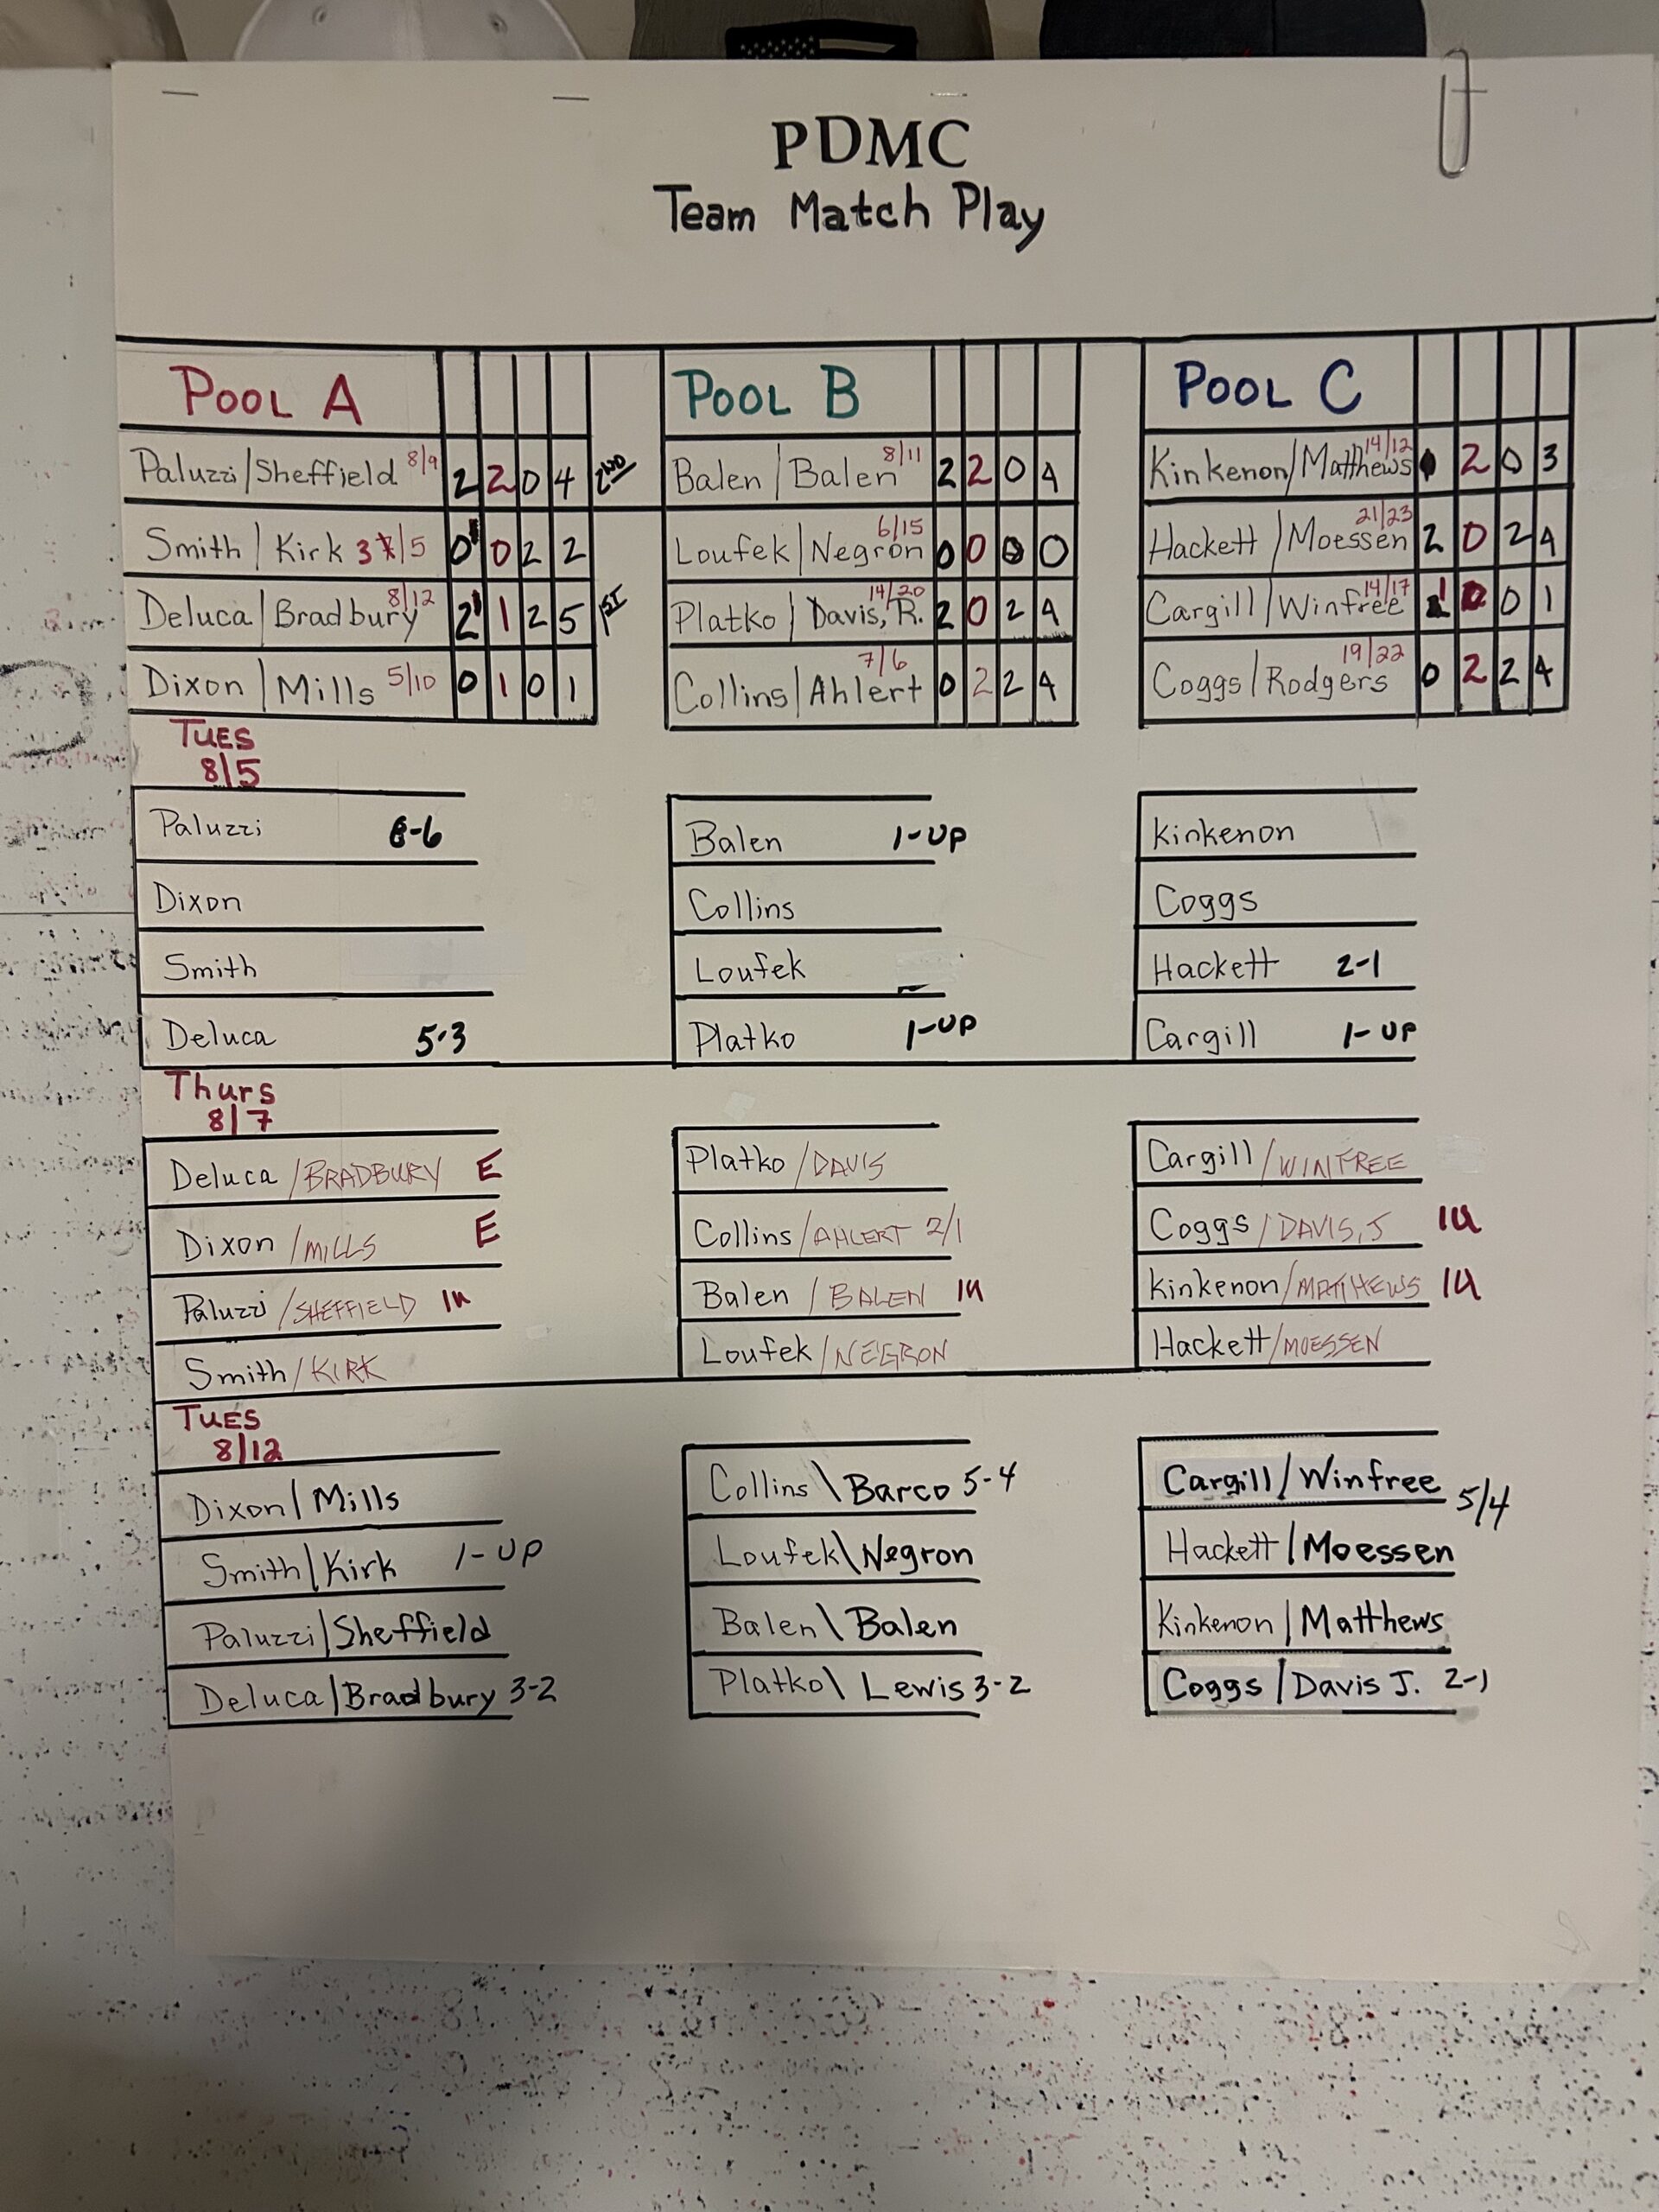 PDMC
Team Match Play
POOL A
Paluzzi/Sheffield 8/9 2 2 0 4 2ND
Smith/Kirk 3 /5 0 0 2 2
Deluca/Bradbury 8/12 2 1 2 5 1ST
Dixon/Mills 5/10 0 1 0 1
POOL B
Balen/Balen 8/11 2 2 0 4
Loufek/Negron 6/15 0 0 0 0
Platko/Davis, R. 14/20 2 0 2 4
Collins/Ahlert 7/6 0 2 2 4
POOL C
Kinkenon/Matthews 14/12 2 0 3
Hackett/Moessen 21/23 2 0 2 4
Cargill/Winfree 14/17 1 0 0 1
Coggs/Rodgers 19/22 0 2 2 4
TUES
8/5
Paluzzi 8-6
Dixon
Smith
Deluca 5-3
Balen 1-UP
Collins
Loufek
Platko 1-UP
Kinkenon
Coggs
Hackett 2-1
Cargill 1-UP
Thurs
8/7
Deluca/BRADBURY E
Dixon/MILLS E
Paluzzi/SHEFFIELD 1u
Smith/KIRK
Platko/DAVIS
Collins/AHLERT 2/1
Balen/BALEN 1u
Loufek/NEGRON
Cargill/WINFREE
Coggs/DAVIS, J 1u
Kinkenon/MATTHEWS 1u
Hackett/MOESSEN
TUES
8/12
Dixon/Mills
Smith/Kirk 1-UP
Paluzzi/Sheffield
Deluca/Bradbury 3-2
Collins\Barco 5-4
Loufek\Negron
Balen\Balen
Platko\Lewis 3-2
Cargill/Winfree 5/4
Hackett/Moessen
Kinkenon/Matthews
Coggs/Davis J. 2-1